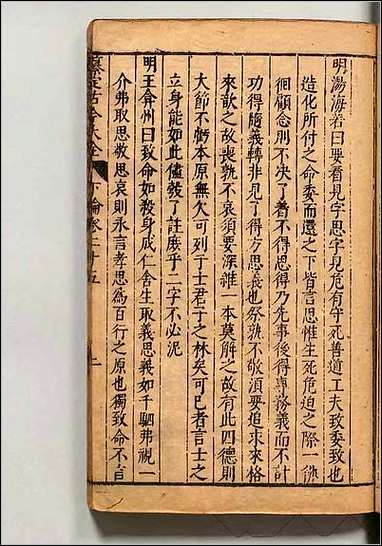 明湯海若曰要看見字思字見危有守死善道工夫致委致也
造化所付之命委而還之下皆言思惟生死危迫之際一係
徊顧念則不決了着不得思得乃先事後得專務義而不計
功得隨義轉非見了得方思義也祭孰不敬須要追求來格
來歆之故喪孰不哀須要深維一本莫解之故有此四德則
大節不虧本原無欠可列于士君子之林矣可已者言士之
立身能如此儘彀了註庶乎二字不必泥
明王弇州曰致命如殺身成仁舍生取義思義如千駟弗視一
介弗取思敬思哀則永言孝思為百行之原也獨致命不言
古今大全
下論卷二十五
二